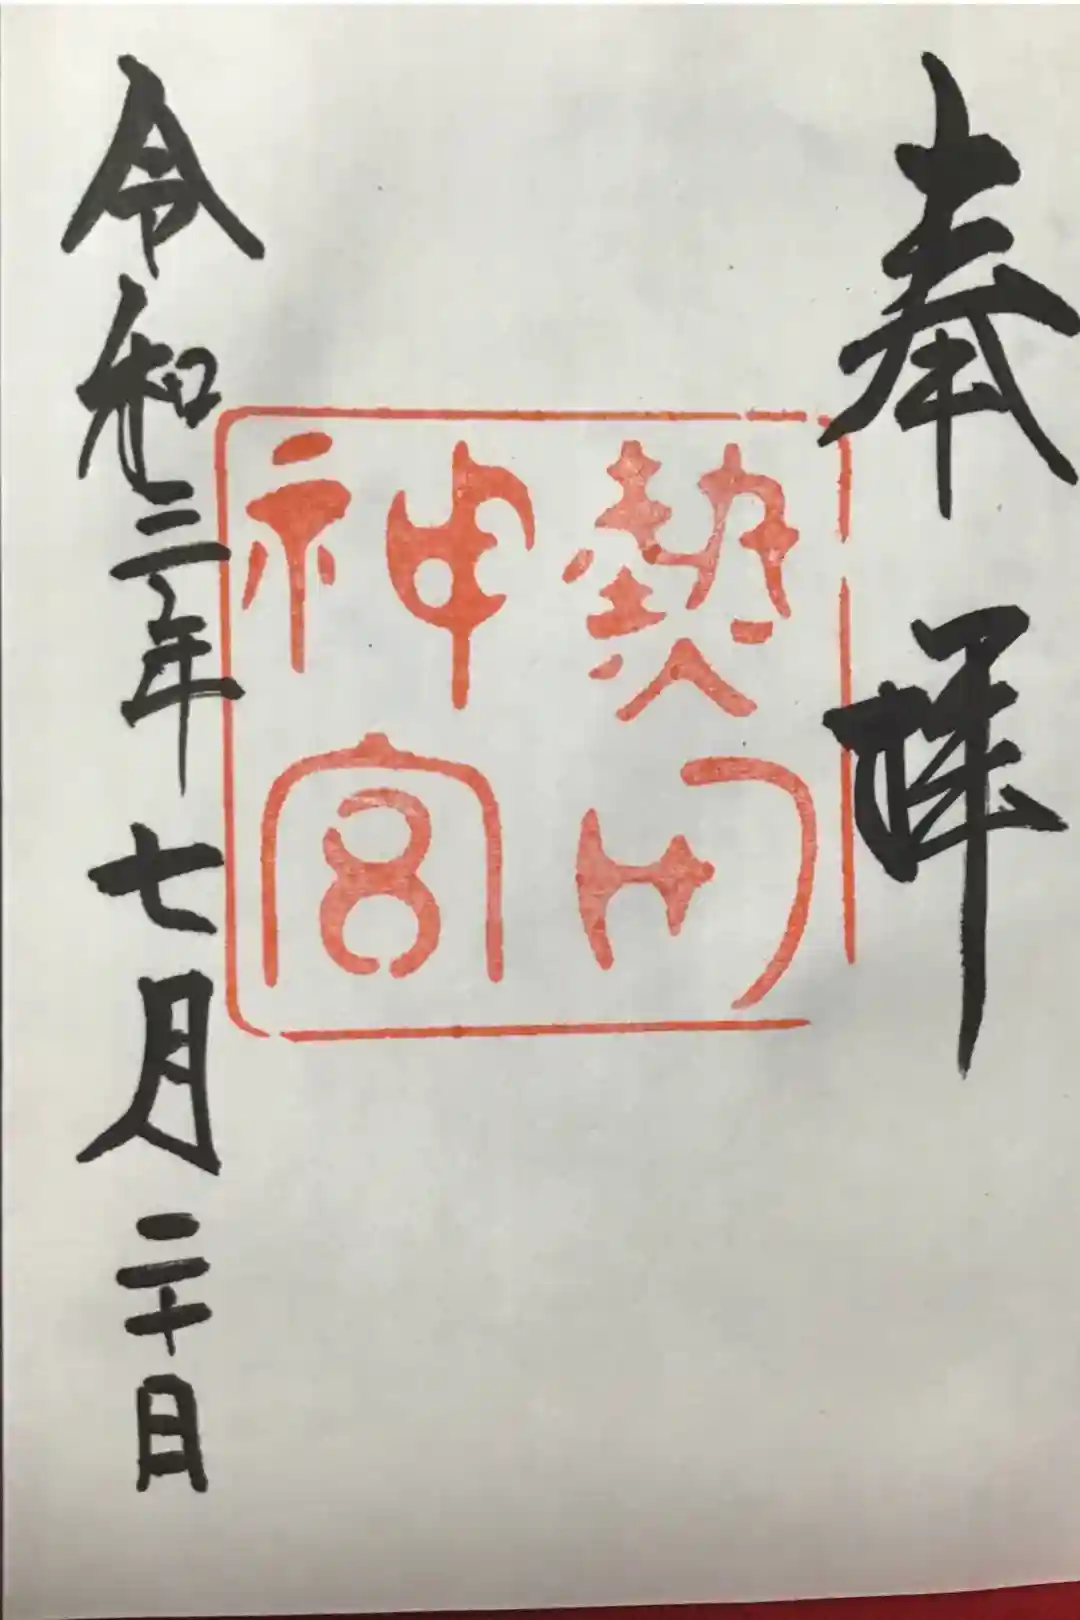 奉拝
熱田
神宮
令和三年七月二十日